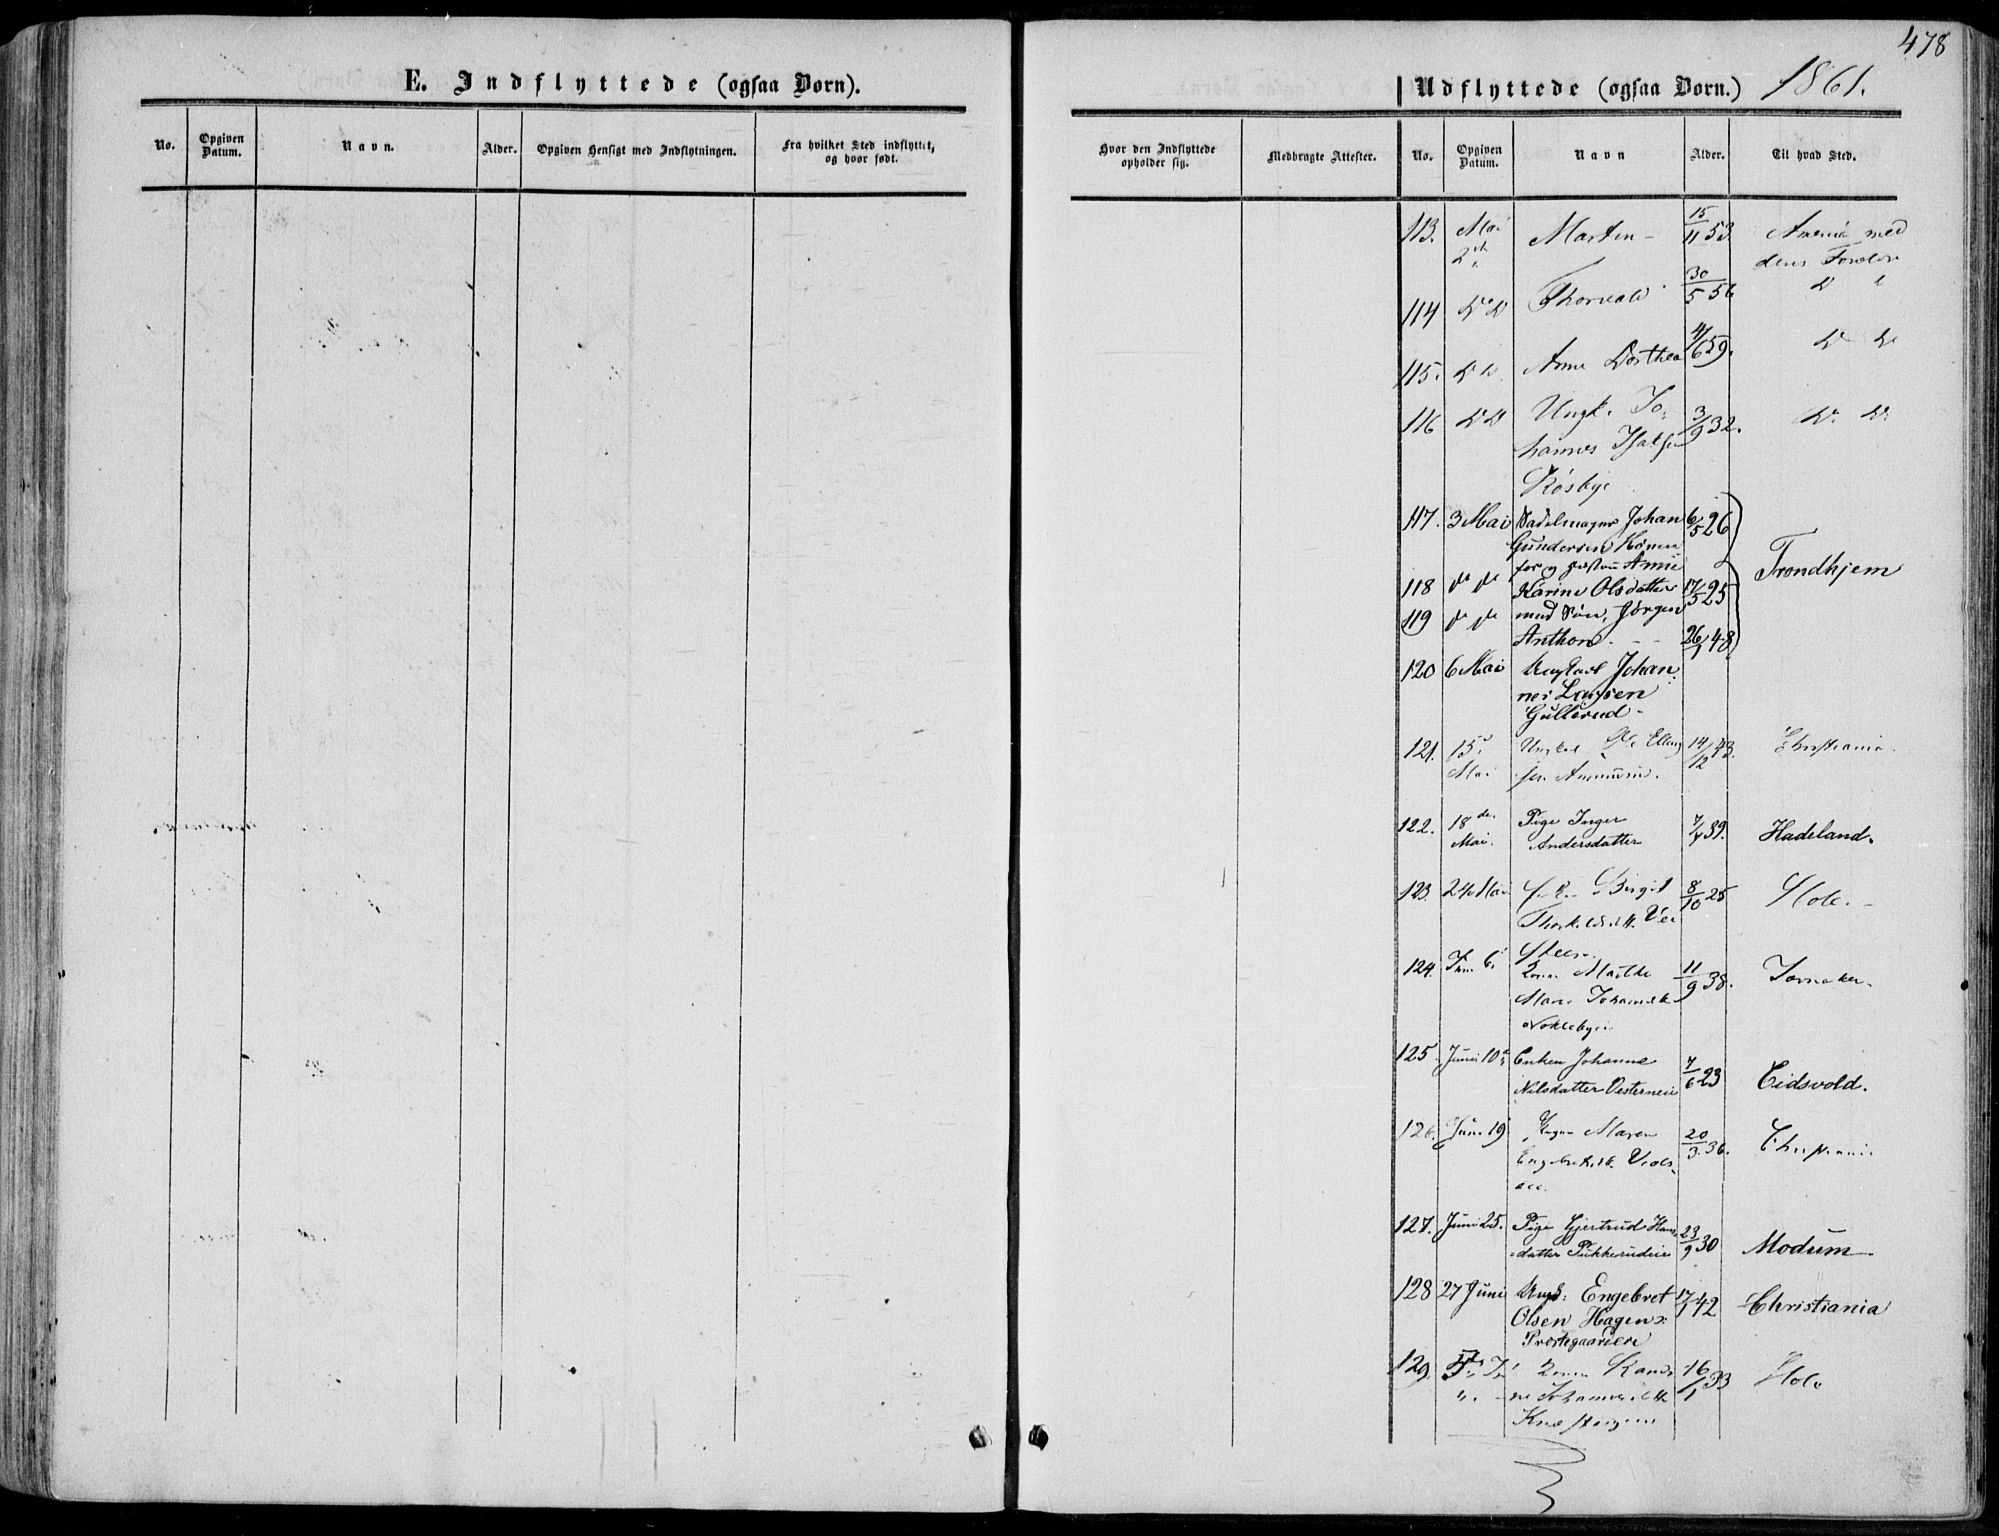 478
E. Indflyttede (ogsaa Børn).
Udflyttede (ogsaa Børn.) 1861.
No. Opgiven Datum. Navn. Alder. Opgiven Hensigt med Indflytningen. Fra hvilket Sted indflyttet, og hvor født.
Hvor den Indflyttede opholder sig. Medbragte Attester. No. Opgiven Datum. Navn Alder. Til hvad Sted.
113. Mai 2 Martin 15/11 53. America med
deres Forældre
114 Do Do Thorvald 30/5 56 Do
115. Do Do Anne Dorthea 4/6 59. Do Do
116 Do Do Ungk. Jo- 3/9 32. Do Do
hannes Isaksen
Røsbye
117. 3 Mai Sadelmager Johan 6/5 26
Gundersen
og Anne Trondhjem
118 do do Karine Olsdatter 17/5 25
119 do do med Søn, Jørgen
Anthon 26/1 48
120 6 Mai Ungkarl Johan-
nes Larsen
Gullerud
121. 15 Ungkarl Ole Elling 14/12 43. Christiania.
Mai sen
122. 18de Pige Inger 7/7 39. Hadeland.
Mai. Andersdatter
123. 24 Mai Birgit 8/10 25 Hole.
Thorkildsdtt.
124. Juni 6 Marthe 11/9 38. Jevnaker.
Maria Johannesd.
Noklebye
125. Juni 10 Enken Johanne 7/6 23 Eidsvold.
Nilsdatter Vesterneie
126. Juni 19 Maren 20/3 36. Christiania
Engebretsd.
127. Juni 25. Pige Gjertrud Hans- 23/9 30 Modum
datter Pukkerudeie
128 27 Juni Ungk: Engebret 17/1 42 Christiania
Olsen Hagen
Præstegaardeie
129. Randi 16/1 33 Hole